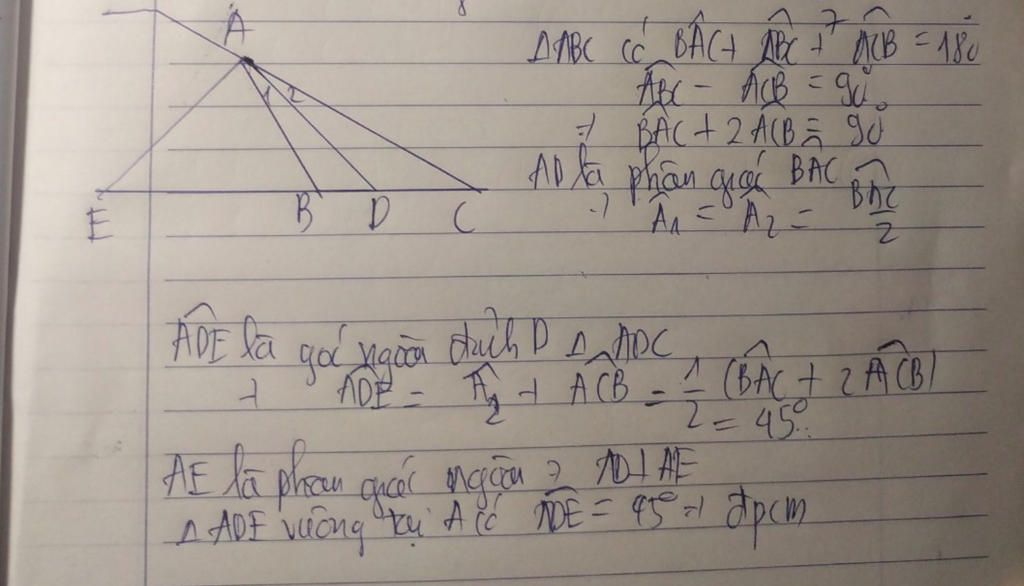 A
1 2
E B D C
ΔABC có BÂC + ABC + ACB = 180
ABC - ACB = 90°
=> BAC + 2 ACB = 90°
AD là phân giác BAC
=> A1 = A2 = BAC/2
ADE là góc ngoài đỉnh D Δ ADC
=> ADE = A2 + ACB = 1/2 (BAC + 2 ACB)
= 45°.
AE là phân giác ngoài => AD ⊥ AE
Δ ADE vuông tại A có ADE = 45° => đpcm